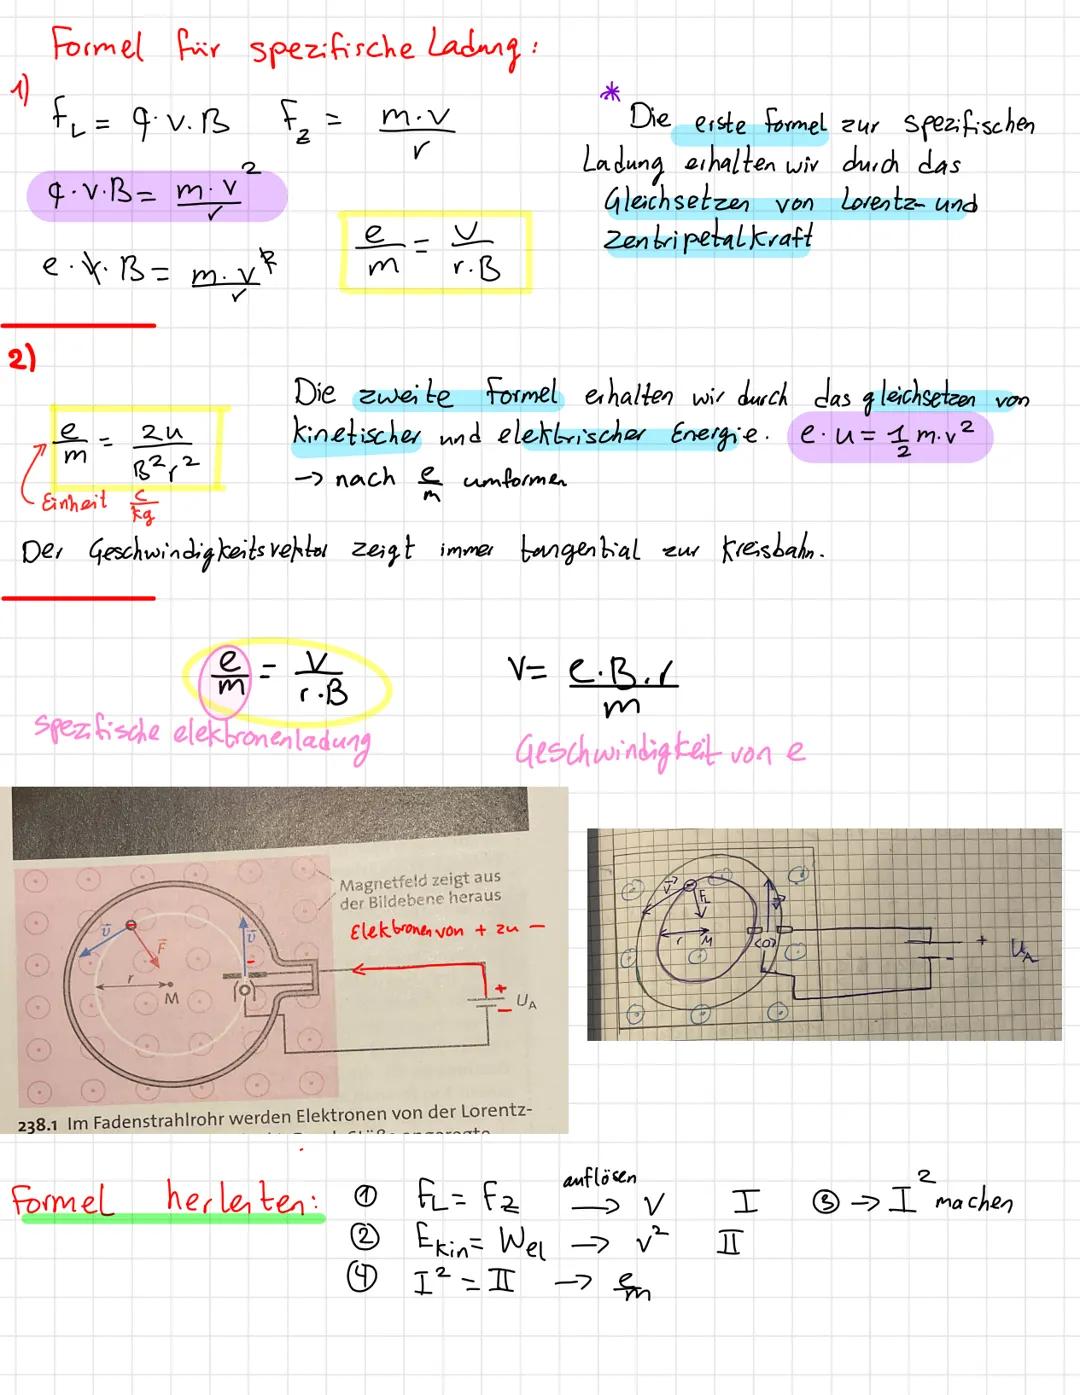 Formel für spezifische Ladung:
1)
F_L = q·v·B F_z = m·v / r
q·v·B = m·v² / r
e·v·B = m·v² / r
e/m = v / r·B
* Die erste Formel zur spezifischen
Ladung erhalten wir durch das
Gleichsetzen von Lorentz- und
Zentripetalkraft
2)
e/m = 2u / B² r²
Einheit C/kg
Die zweite Formel erhalten wir durch das gleichsetzen von
kinetischer und elektrischer Energie. e·u = 1/2 m·v²
→ nach e/m umformen
Der Geschwindigkeitsvektor zeigt immer tangential zur Kreisbahn.
e/m = v / r·B
spezifische elektronenladung
v = e·B·r / m
Geschwindigkeit von e
Magnetfeld zeigt aus
der Bildebene heraus
Elektronen von + zu −
v F v
r M
+ − U_A
238.1 Im Fadenstrahlrohr werden Elektronen von der Lorentz-
v F_L v
r M
+ U_A
Formel herleiten:
① F_L = F_z auflösen → v I ③ → I² machen
② E_kin = W_el → v² II
④ I² = II → e/m